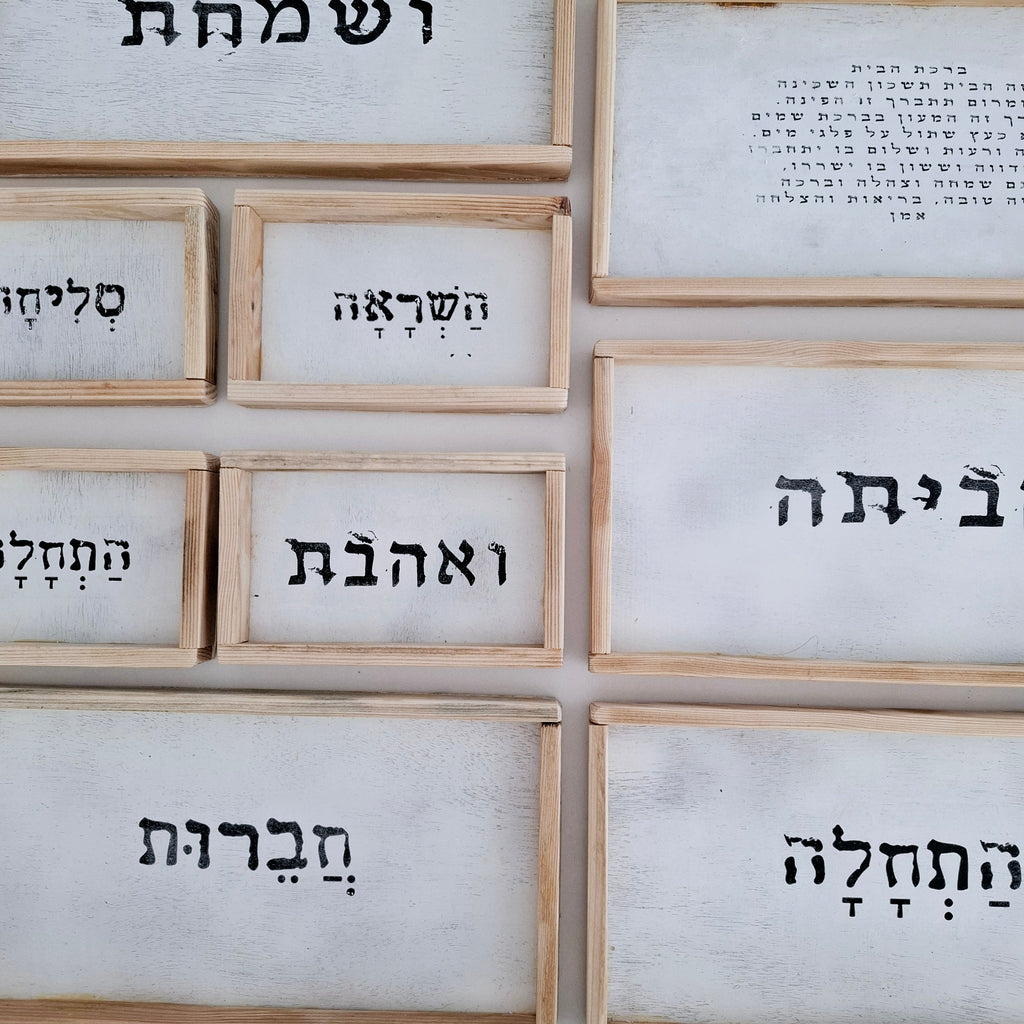 ושמחת
ברכת הבית
הבית תשכון השכינה
ממרום תתברך זו הפינה.
זה המעון בברכת שמים
כעץ שתול על פלגי מים.
ורעות ושלום בו יתחברו
וששון בו ישררו,
שמחה וצהלה וברכה
טובה, בריאות והצלחה
אמן
הַשְׁרָאָה
סְלִיחָה
ביתה
ואהבת
הַתְחָלָה
חֲבֵרוּת
הַתְחָלָה